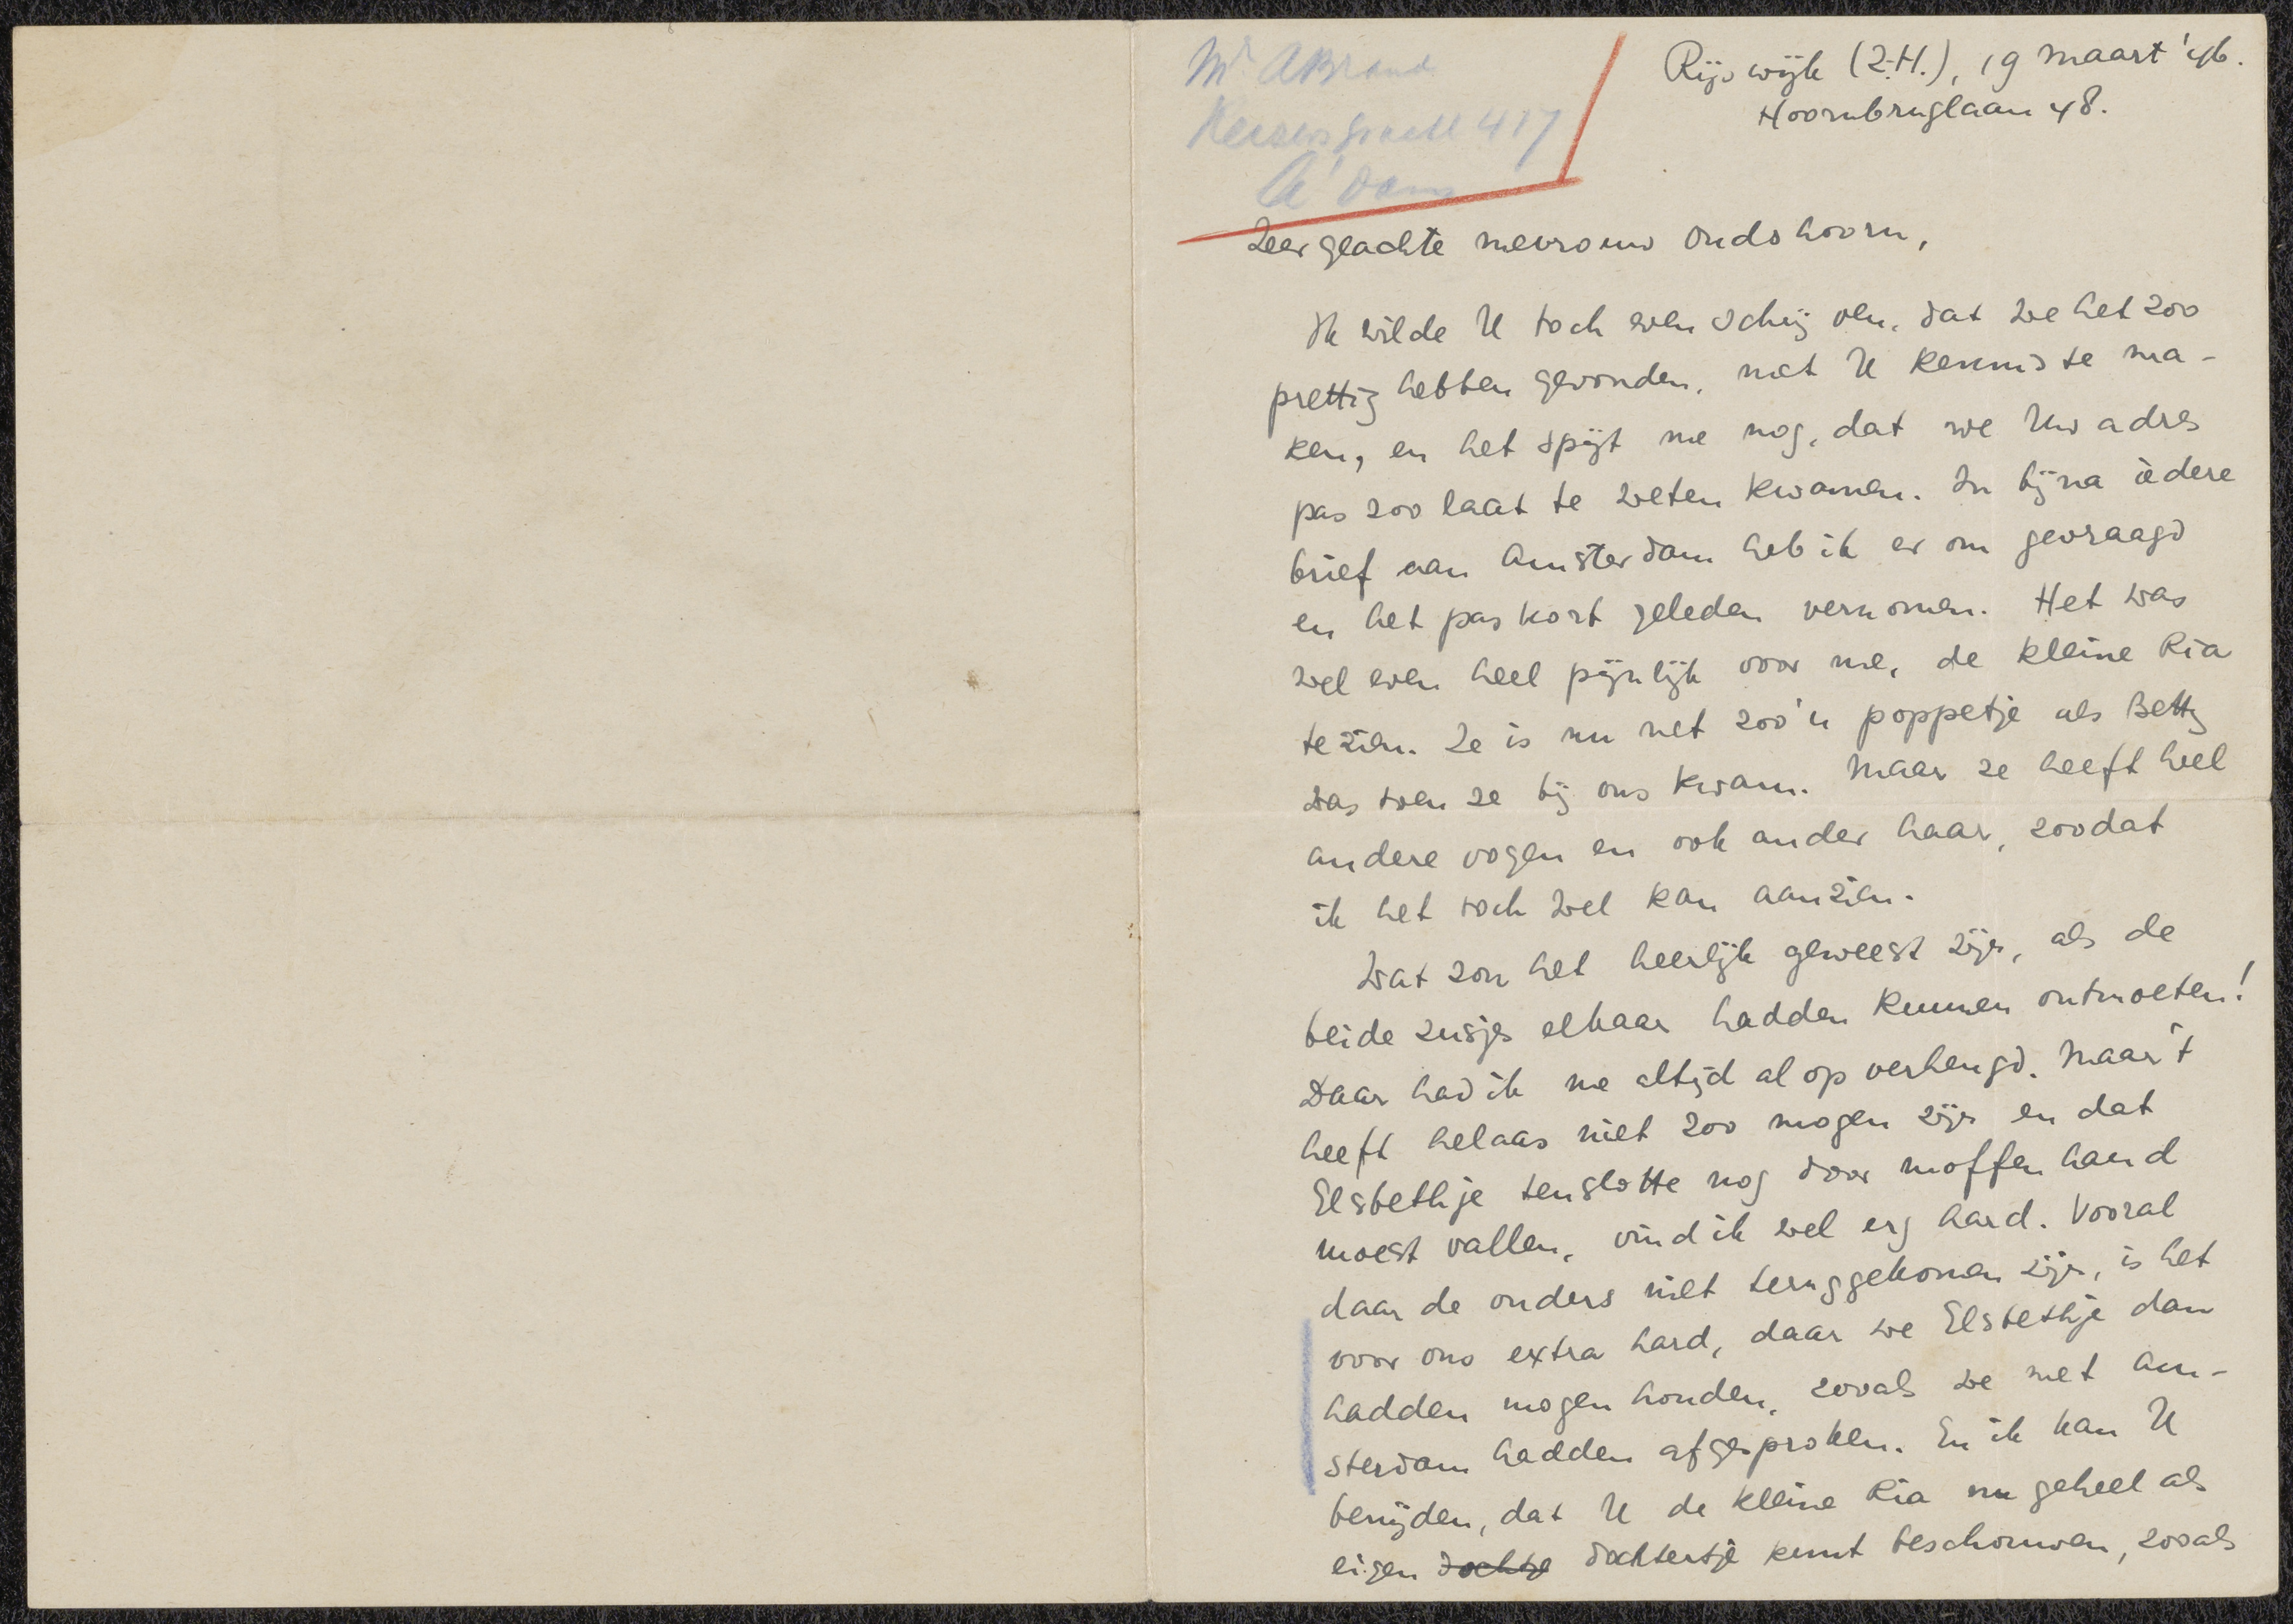 Mr ABrand
Keizersgracht 417
A'dam
Rijswijk (Z.H.), 19 maart '46.
Hoornbruglaan 48.
Zeer geachte mevrouw Oudshoorn,
Ik wilde U toch even schrijven, dat we het zoo
prettig hebben gevonden, met U kennis te ma-
ken, en het spijt me nog, dat we Uw adres
pas zoo laat te weten kwamen. In bijna iedere
brief aan Amsterdam heb ik er om gevraagd
en het pas kort geleden vernomen. Het was
wel even heel pijnlijk voor me, de kleine Ria
te zien. Ze is nu net zoo'n poppetje als Betty
was toen ze bij ons kwam. Maar ze heeft heel
andere oogen en ook ander haar, zoodat
ik het toch wel kan aanzien.
Wat zou het heerlijk geweest zijn, als de
beide zusjes elkaar hadden kunnen ontmoeten!
Daar had ik me altijd al op verheugd. Maar 't
heeft helaas niet zoo mogen zijn en dat
Elsbethje tenslotte nog door moffenhand
moest vallen, vind ik wel erg hard. Vooral
daar de ouders niet teruggekomen zijn, is het
voor ons extra hard, daar we Elsbethje dan
hadden mogen houden, zooals we met Am-
sterdam hadden afgesproken. En ik kan U
benijden, dat U de kleine Ria nu geheel als
eigen dochtje dochtertje kunt beschouwen, zooals